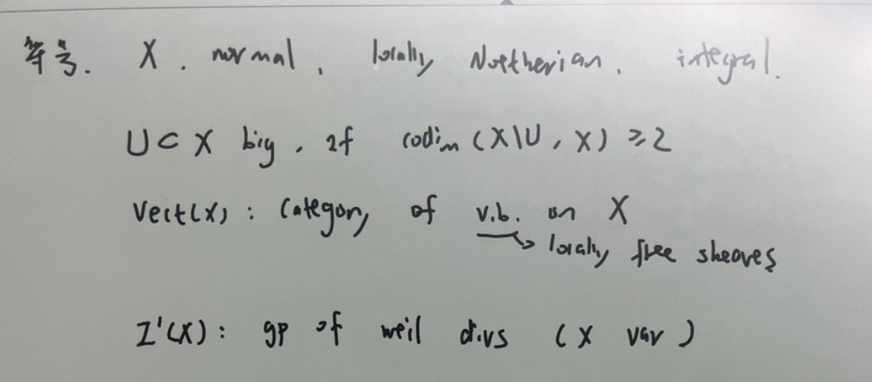 X. normal, locally Noetherian, integral.
U ⊂ X big, if codim (X\U, X) ≥ 2
Vect(X) : Category of v.b. on X
→ locally free sheaves
Z'(X) : gp of weil divs (X var)